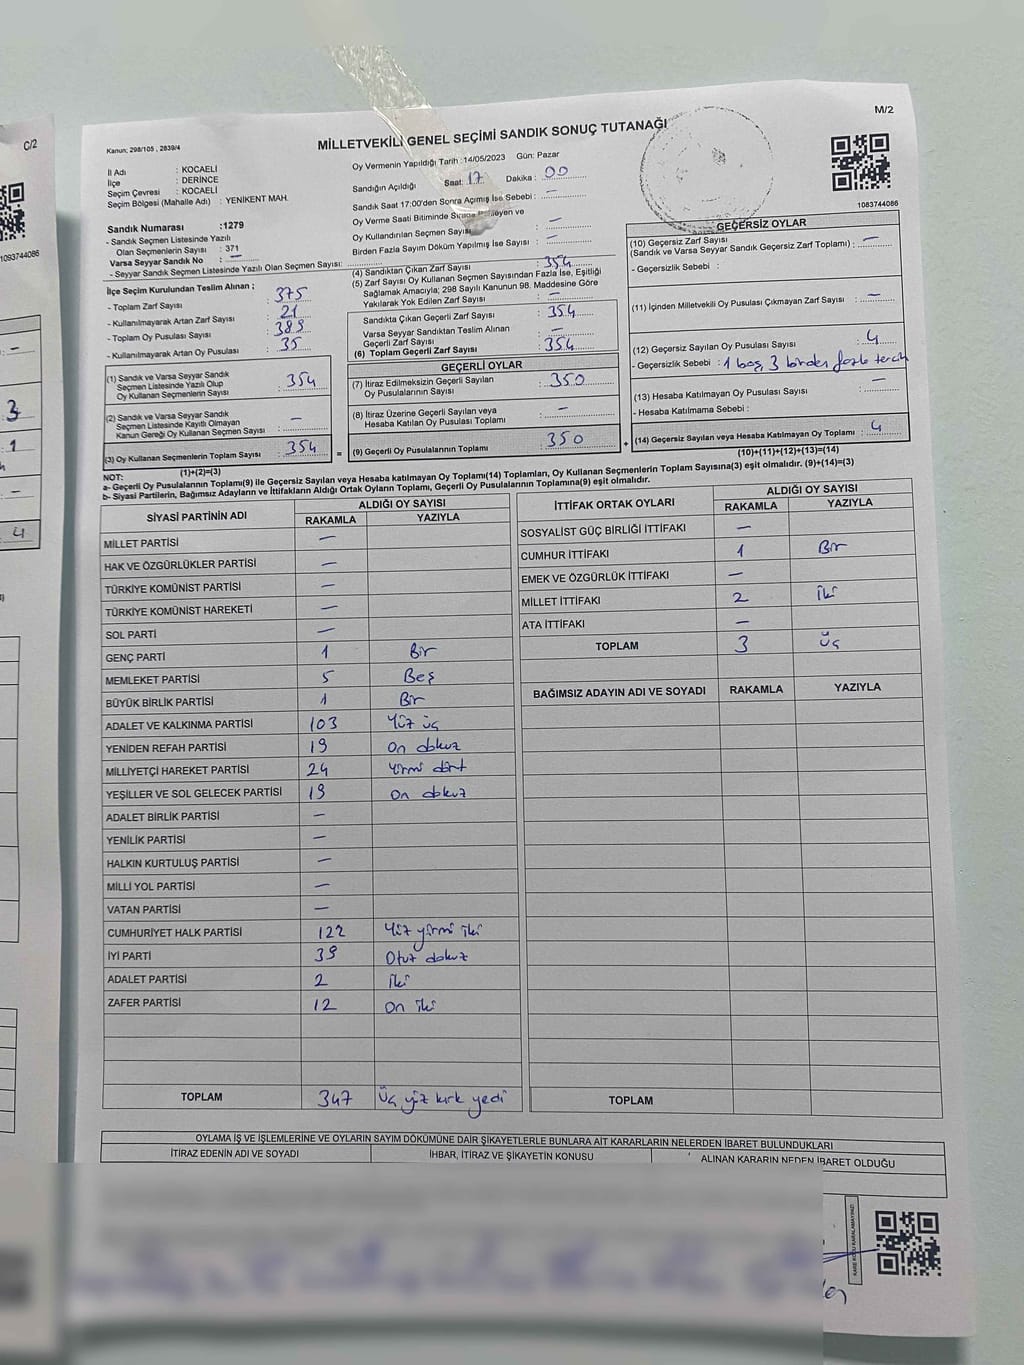 C/2
M/2
Kanun; 298/105 , 2839/4
MİLLETVEKİLİ GENEL SEÇİMİ SANDIK SONUÇ TUTANAĞI
İl Adı : KOCAELİ
İlçe : DERİNCE
Seçim Çevresi : KOCAELİ
Seçim Bölgesi (Mahalle Adı) : YENİKENT MAH.
Sandık Numarası :1279
- Sandık Seçmen Listesinde Yazılı
Olan Seçmenlerin Sayısı : 371
Varsa Seyyar Sandık No : —
- Seyyar Sandık Seçmen Listesinde Yazılı Olan Seçmen Sayısı:
Oy Vermenin Yapıldığı Tarih :14/05/2023 Gün: Pazar
Sandığın Açıldığı Saat: 17 Dakika : 00
Sandık Saat 17:00'den Sonra Açımış İse Sebebi : —
Oy Verme Saati Bitiminde Sırada Bekleyen ve
Oy Kullandırılan Seçmen Sayısı : —
Birden Fazla Sayım Döküm Yapılmış İse Sayısı : —
1083744086
1093744086
İlçe Seçim Kurulundan Teslim Alınan ;
- Toplam Zarf Sayısı : 375
- Kullanılmayarak Artan Zarf Sayısı : 21
- Toplam Oy Pusulası Sayısı : 389
- Kullanılmayarak Artan Oy Pusulası : 35
(1) Sandık ve Varsa Seyyar Sandık
Seçmen Listesinde Yazılı Olup
Oy Kullanan Seçmenlerin Sayısı : 354
(2) Sandık ve Varsa Seyyar Sandık
Seçmen Listesinde Kayıtlı Olmayan
Kanun Gereği Oy Kullanan Seçmen Sayısı : —
(3) Oy Kullanan Seçmenlerin Toplam Sayısı : 354
(1)+(2)=(3)
(4) Sandıktan Çıkan Zarf Sayısı : 354
(5) Zarf Sayısı Oy Kullanan Seçmen Sayısından Fazla İse, Eşitliği
Sağlamak Amacıyla; 298 Sayılı Kanunun 98. Maddesine Göre
Yakılarak Yok Edilen Zarf Sayısı : —
Sandıkta Çıkan Geçerli Zarf Sayısı : 354
Varsa Seyyar Sandıktan Teslim Alınan
Geçerli Zarf Sayısı : —
(6) Toplam Geçerli Zarf Sayısı : 354
GEÇERLİ OYLAR
(7) İtiraz Edilmeksizin Geçerli Sayılan
Oy Pusulalarının Sayısı : 350
(8) İtiraz Üzerine Geçerli Sayılan veya
Hesaba Katılan Oy Pusulası Toplamı : —
= (9) Geçerli Oy Pusulalarının Toplamı : 350 +
GEÇERSİZ OYLAR
(10) Geçersiz Zarf Sayısı
(Sandık ve Varsa Seyyar Sandık Geçersiz Zarf Toplamı) : —
- Geçersizlik Sebebi :
(11) İçinden Milletvekili Oy Pusulası Çıkmayan Zarf Sayısı : —
(12) Geçersiz Sayılan Oy Pusulası Sayısı : 4
- Geçersizlik Sebebi : 1 boş, 3 birden fazla tercih
(13) Hesaba Katılmayan Oy Pusulası Sayısı : —
- Hesaba Katılmama Sebebi :
(14) Geçersiz Sayılan veya Hesaba Katılmayan Oy Toplamı : 4
(10)+(11)+(12)+(13)=(14)
NOT:
a- Geçerli Oy Pusulalarının Toplamı(9) ile Geçersiz Sayılan veya Hesaba katılmayan Oy Toplamı(14) Toplamları, Oy Kullanan Seçmenlerin Toplam Sayısına(3) eşit olmalıdır. (9)+(14)=(3)
b- Siyasi Partilerin, Bağımsız Adayların ve İttifakların Aldığı Ortak Oyların Toplamı, Geçerli Oy Pusulalarının Toplamına(9) eşit olmalıdır.
SİYASİ PARTİNİN ADI ALDIĞI OY SAYISI
RAKAMLA YAZIYLA
MİLLET PARTİSİ —
HAK VE ÖZGÜRLÜKLER PARTİSİ —
TÜRKİYE KOMÜNİST PARTİSİ —
TÜRKİYE KOMÜNİST HAREKETİ —
SOL PARTİ —
GENÇ PARTİ 1 Bir
MEMLEKET PARTİSİ 5 Beş
BÜYÜK BİRLİK PARTİSİ 1 Bir
ADALET VE KALKINMA PARTİSİ 103 Yüz üç
YENİDEN REFAH PARTİSİ 19 On dokuz
MİLLİYETÇİ HAREKET PARTİSİ 24 Yirmi dört
YEŞİLLER VE SOL GELECEK PARTİSİ 19 On dokuz
ADALET BİRLİK PARTİSİ —
YENİLİK PARTİSİ —
HALKIN KURTULUŞ PARTİSİ —
MİLLİ YOL PARTİSİ —
VATAN PARTİSİ —
CUMHURİYET HALK PARTİSİ 122 Yüz yirmi iki
İYİ PARTİ 39 Otuz dokuz
ADALET PARTİSİ 2 iki
ZAFER PARTİSİ 12 On iki
TOPLAM 347 Üç yüz kırk yedi
İTTİFAK ORTAK OYLARI ALDIĞI OY SAYISI
RAKAMLA YAZIYLA
SOSYALİST GÜÇ BİRLİĞİ İTTİFAKI —
CUMHUR İTTİFAKI 1 Bir
EMEK VE ÖZGÜRLÜK İTTİFAKI —
MİLLET İTTİFAKI 2 İki
ATA İTTİFAKI —
TOPLAM 3 Üç
BAĞIMSIZ ADAYIN ADI VE SOYADI RAKAMLA YAZIYLA
TOPLAM
OYLAMA İŞ VE İŞLEMLERİNE VE OYLARIN SAYIM DÖKÜMÜNE DAİR ŞİKAYETLERLE BUNLARA AİT KARARLARIN NELERDEN İBARET BULUNDUKLARI
İTİRAZ EDENİN ADI VE SOYADI İHBAR, İTİRAZ VE ŞİKAYETİN KONUSU ALINAN KARARIN NEDEN İBARET OLDUĞU
3
1
4